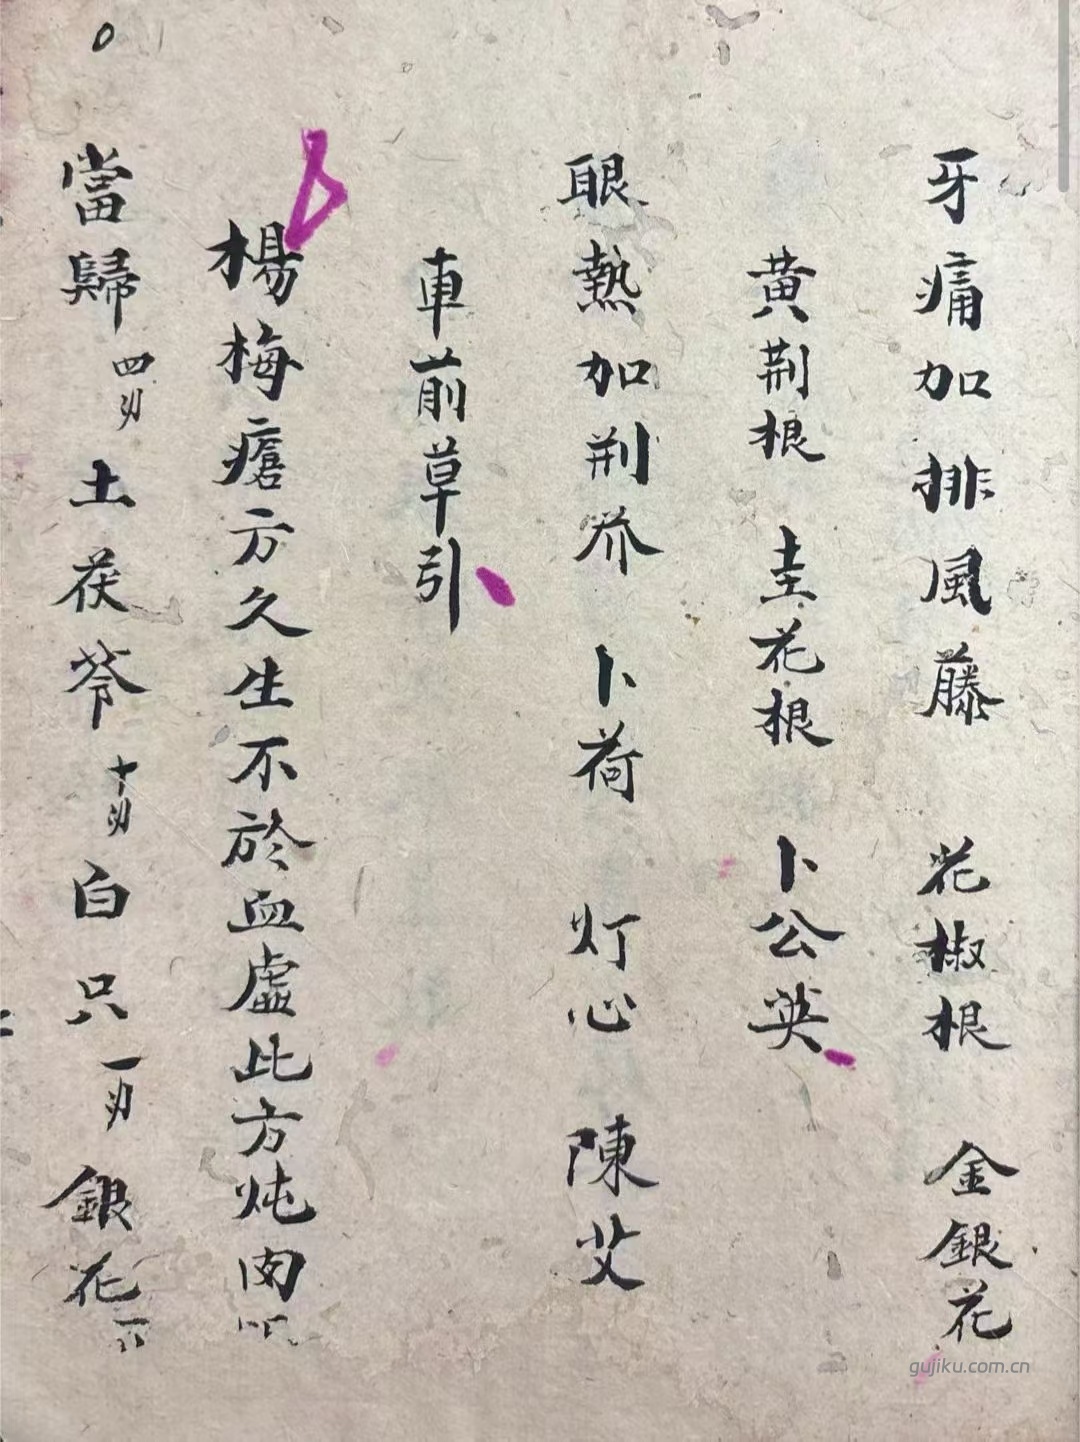 牙痛加排風藤 花椒根 金銀花
黄荆根 圭花根 卜公英
眼熱加荆芥 卜荷 灯心 陳艾
車前草引
楊梅瘡方久生不於血虛此方炖肉
當歸四刄土茯苓十刄白只一刄銀花一
gujiku.com.cn